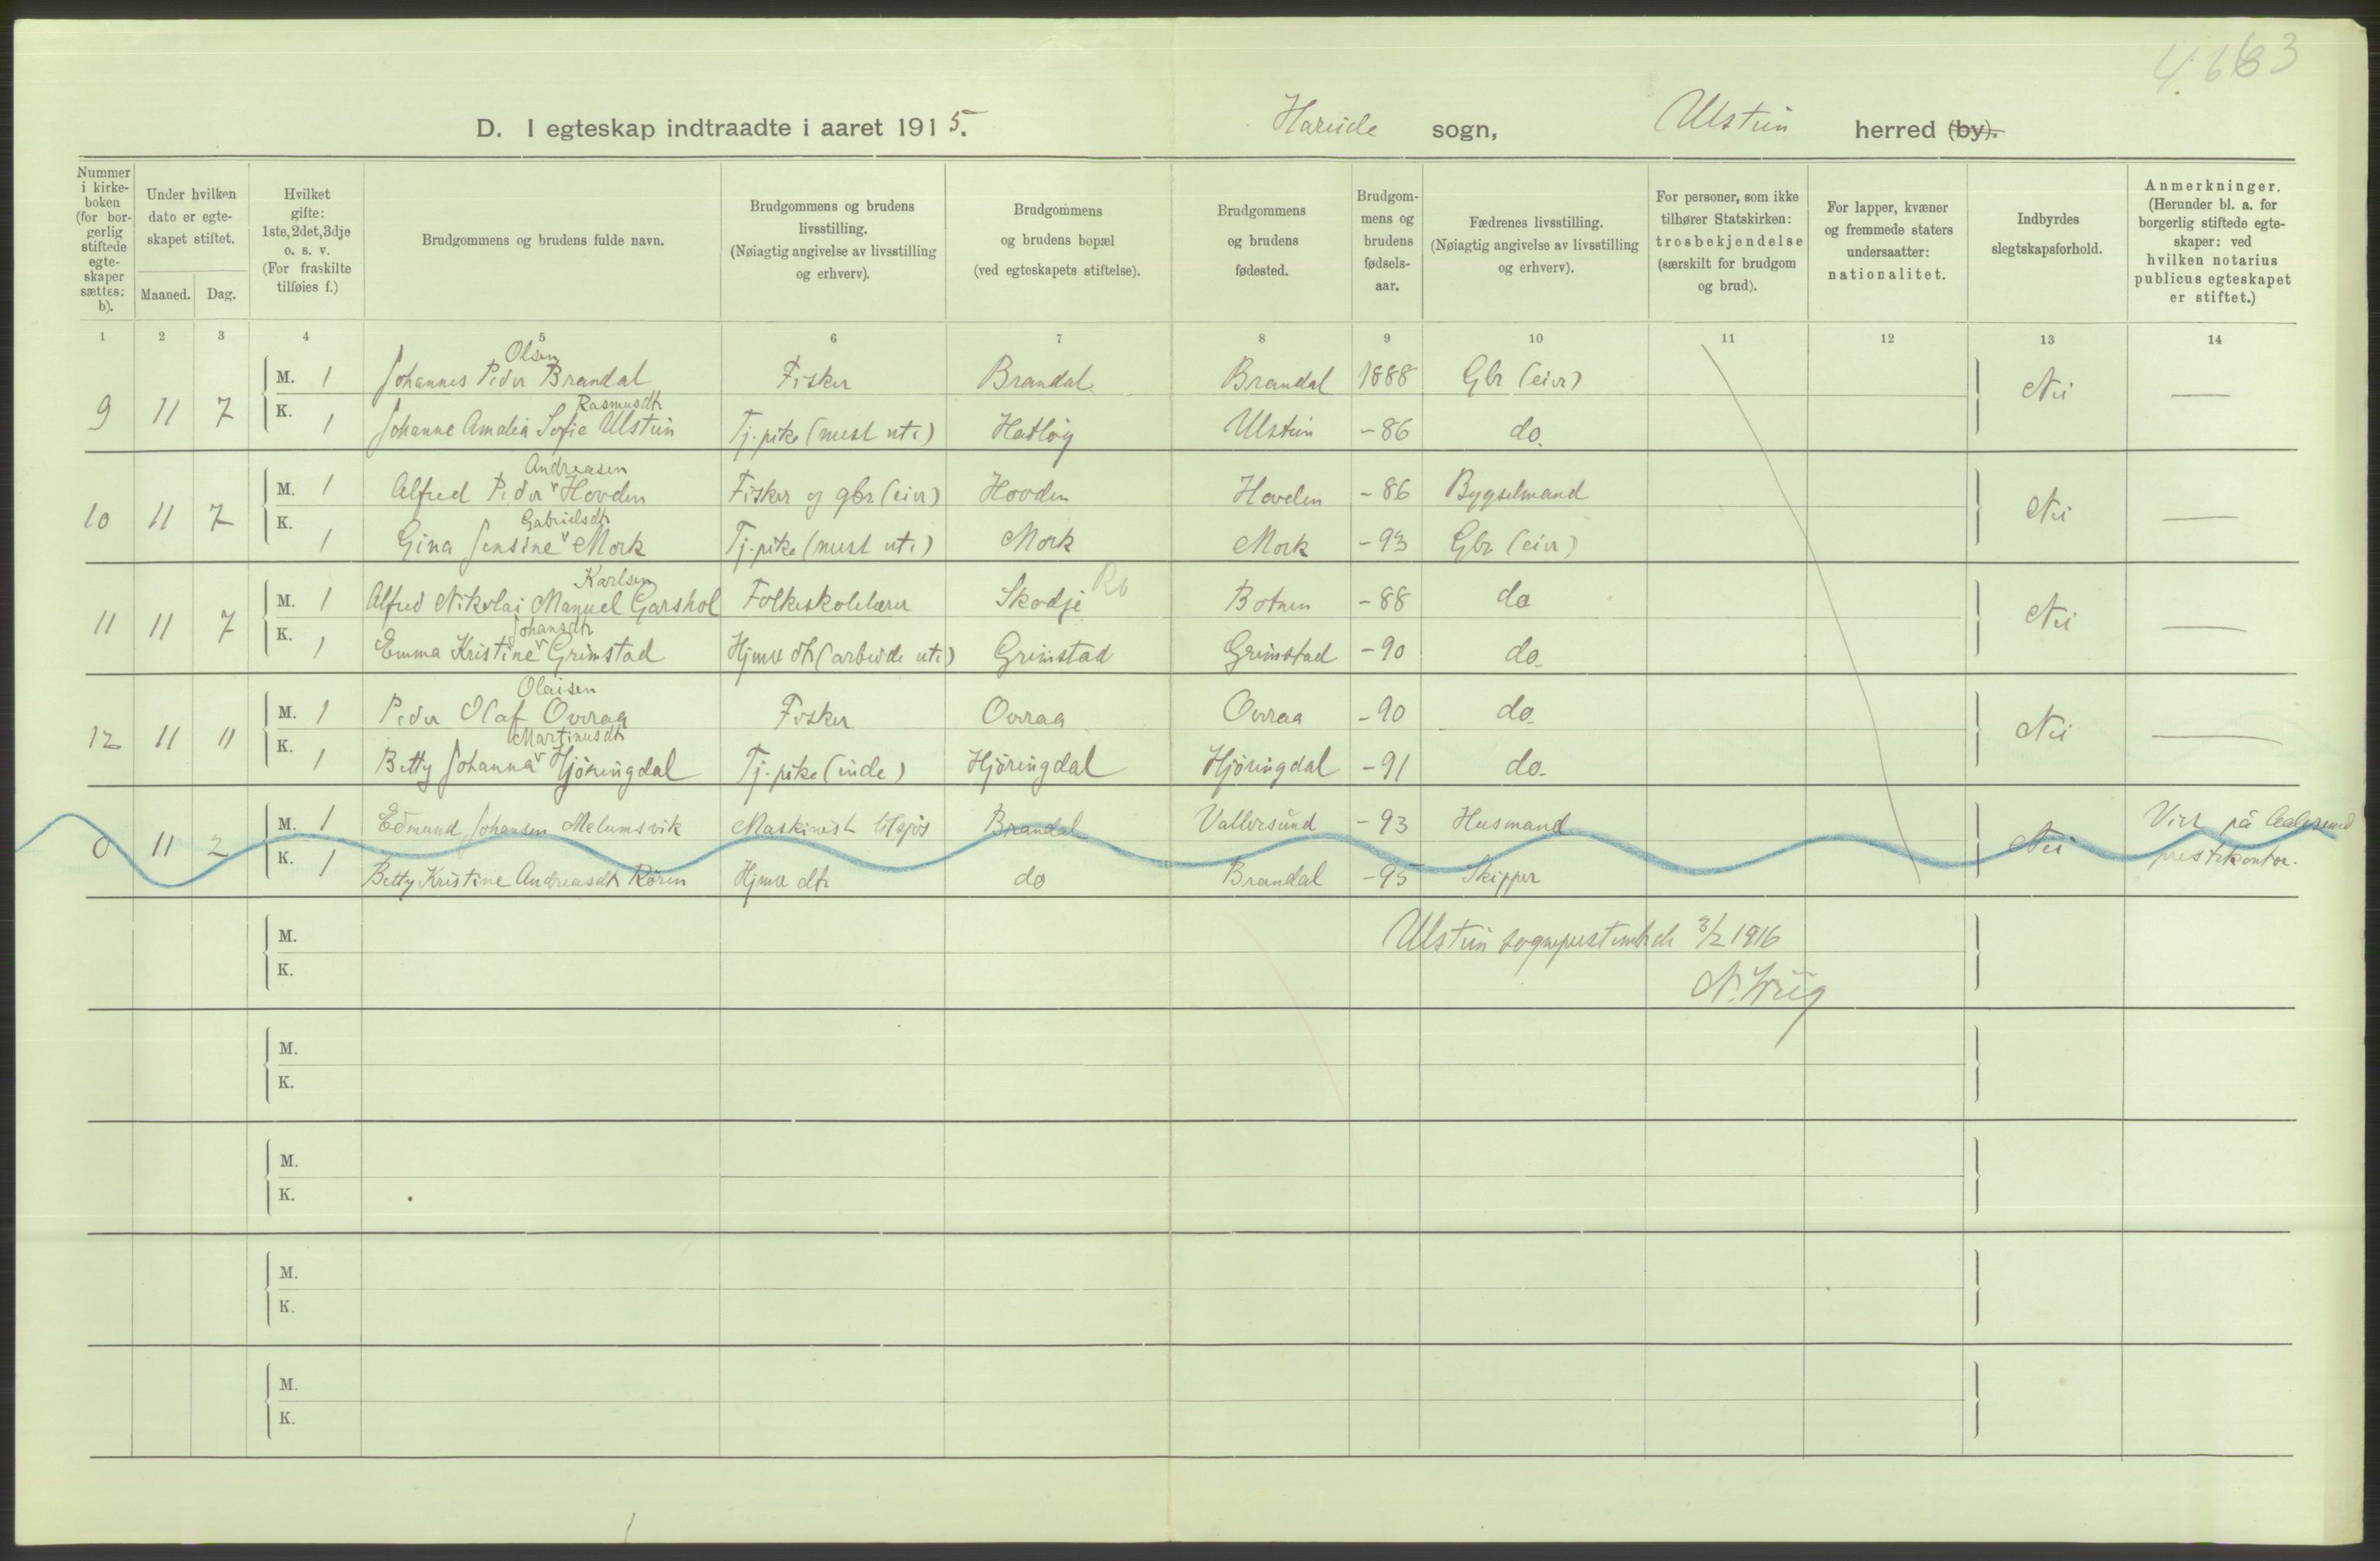 4.663
D. I egteskap indtraadte i aaret 1915. Hareide sogn, Ulstein herred (by).
Nummer i kirkeboken (for borgerlig stiftede egteskaper sættes: b).
Under hvilken dato er egteskapet stiftet.
Maaned. Dag.
Hvilket gifte: 1ste, 2det, 3dje o. s. v. (For fraskilte tilføies f.)
Brudgommens og brudens fulde navn.
Brudgommens og brudens livsstilling. (Nøiagtig angivelse av livsstilling og erhverv).
Brudgommens og brudens bopæl (ved egteskapets stiftelse).
Brudgommens og brudens fødested.
Brudgommens og brudens fødselsaar.
Fædrenes livsstilling. (Nøiagtig angivelse av livsstilling og erhverv).
For personer, som ikke tilhører Statskirken: trosbekjendelse (særskilt for brudgom og brud).
For lapper, kvæner og fremmede staters undersaatter: nationalitet.
Indbyrdes slegtskapsforhold.
Anmerkninger. (Herunder bl. a. for borgerlig stiftede egteskaper: ved hvilken notarius publicus egteskapet er stiftet.)
1 2 3 4 5 6 7 8 9 10 11 12 13 14
Olsen
M. 1 Johannes Peder Brandal Fisker Brandal Brandal 1888 Gbr (eier)
9 11 7 Nei —
Rasmusdtr
K. 1 Johanne Amalia Sofie Ulstein Tj.pike (mest ute) Hatløy Ulstein -86 do.
Andreasen
M. 1 Alfred Peder Hovden Fisker og gbr (eier) Hovden Hovden -86 Bygselmand
10 11 7 Nei —
Gabrielsdtr
K. 1 Gina Jensine Mork Tj.pike (mest ute) Mork Mork -93 Gbr (eier)
Karlsen
M. 1 Alfred Nikolai Manuel Garshol Folkeskolelærer Skodje Botnen -88 do
11 11 7 Nei —
Johansdtr
K. 1 Emma Kristine Grimstad Hjmv dtr (arbeide ute) Grimstad Grimstad -90 do.
Olaisen
M. 1 Peder Olaf Overaa Fisker Overaa Overaa -90 do.
12 11 11 Nei —
Martinusdtr
K. 1 Betty Johanna Hjøringdal Tj.pike (inde) Hjøringdal Hjøringdal -91 do.
M. 1 Edmund Johansen Melumsvik Maskinist tilsjøs Brandal Vallersund -93 Husmand Viet på Aalesund
0 11 2 Nei prestekontor.
K. 1 Betty Kristine Andreasdtr Røren Hjmv dtr do Brandal -95 Skipper
M. Ulstein sogneprestembede 3/2 1916
K.
M.
K.
M.
K.
M.
K.
M.
K.